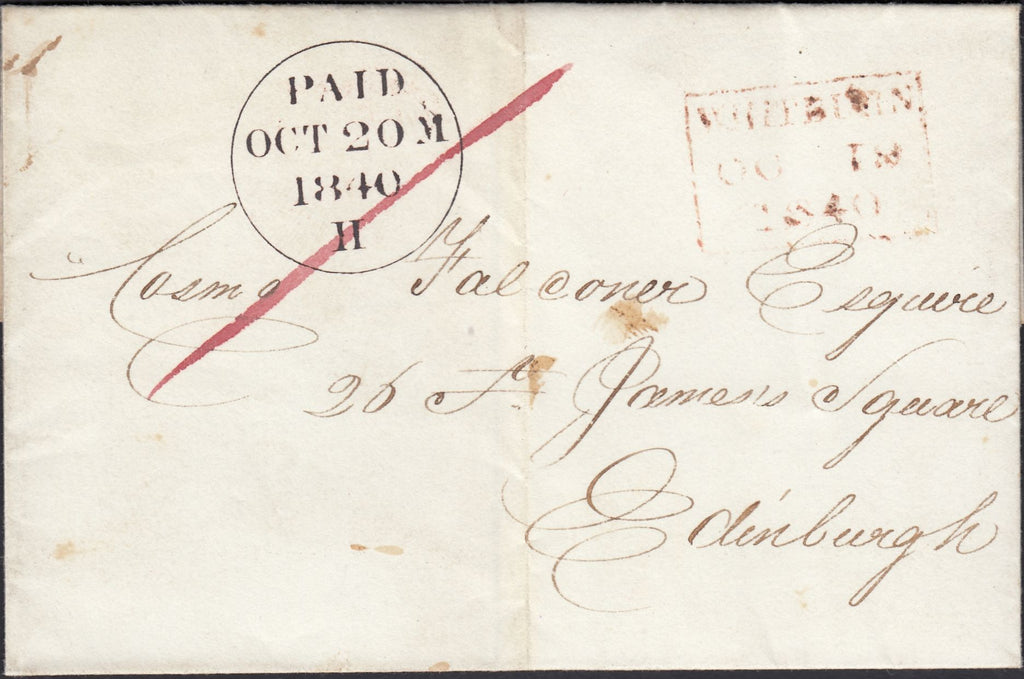 PAID
OCT 20 M
1840
H
WHITHORN
OC 18
1840
Cosmo Falconer Esquire
26 St. James's Square
Edinburgh